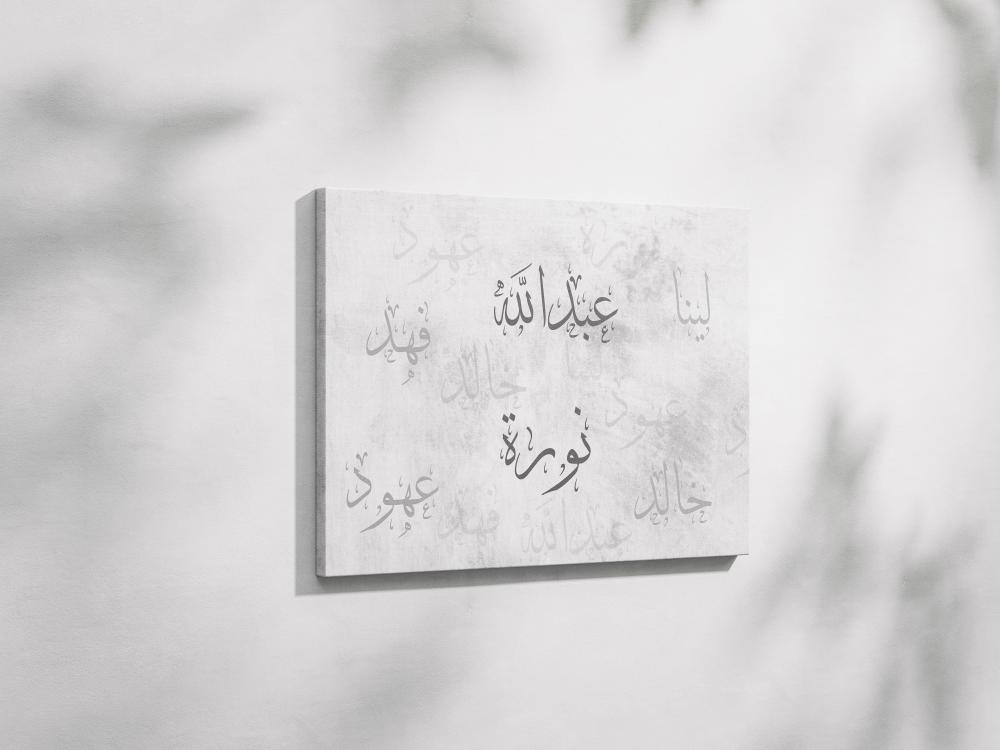 عهود نورة
عبدالله لينا
فهد
خالد لينا
عهود
نورة
عهود خالد
فهد عبدالله